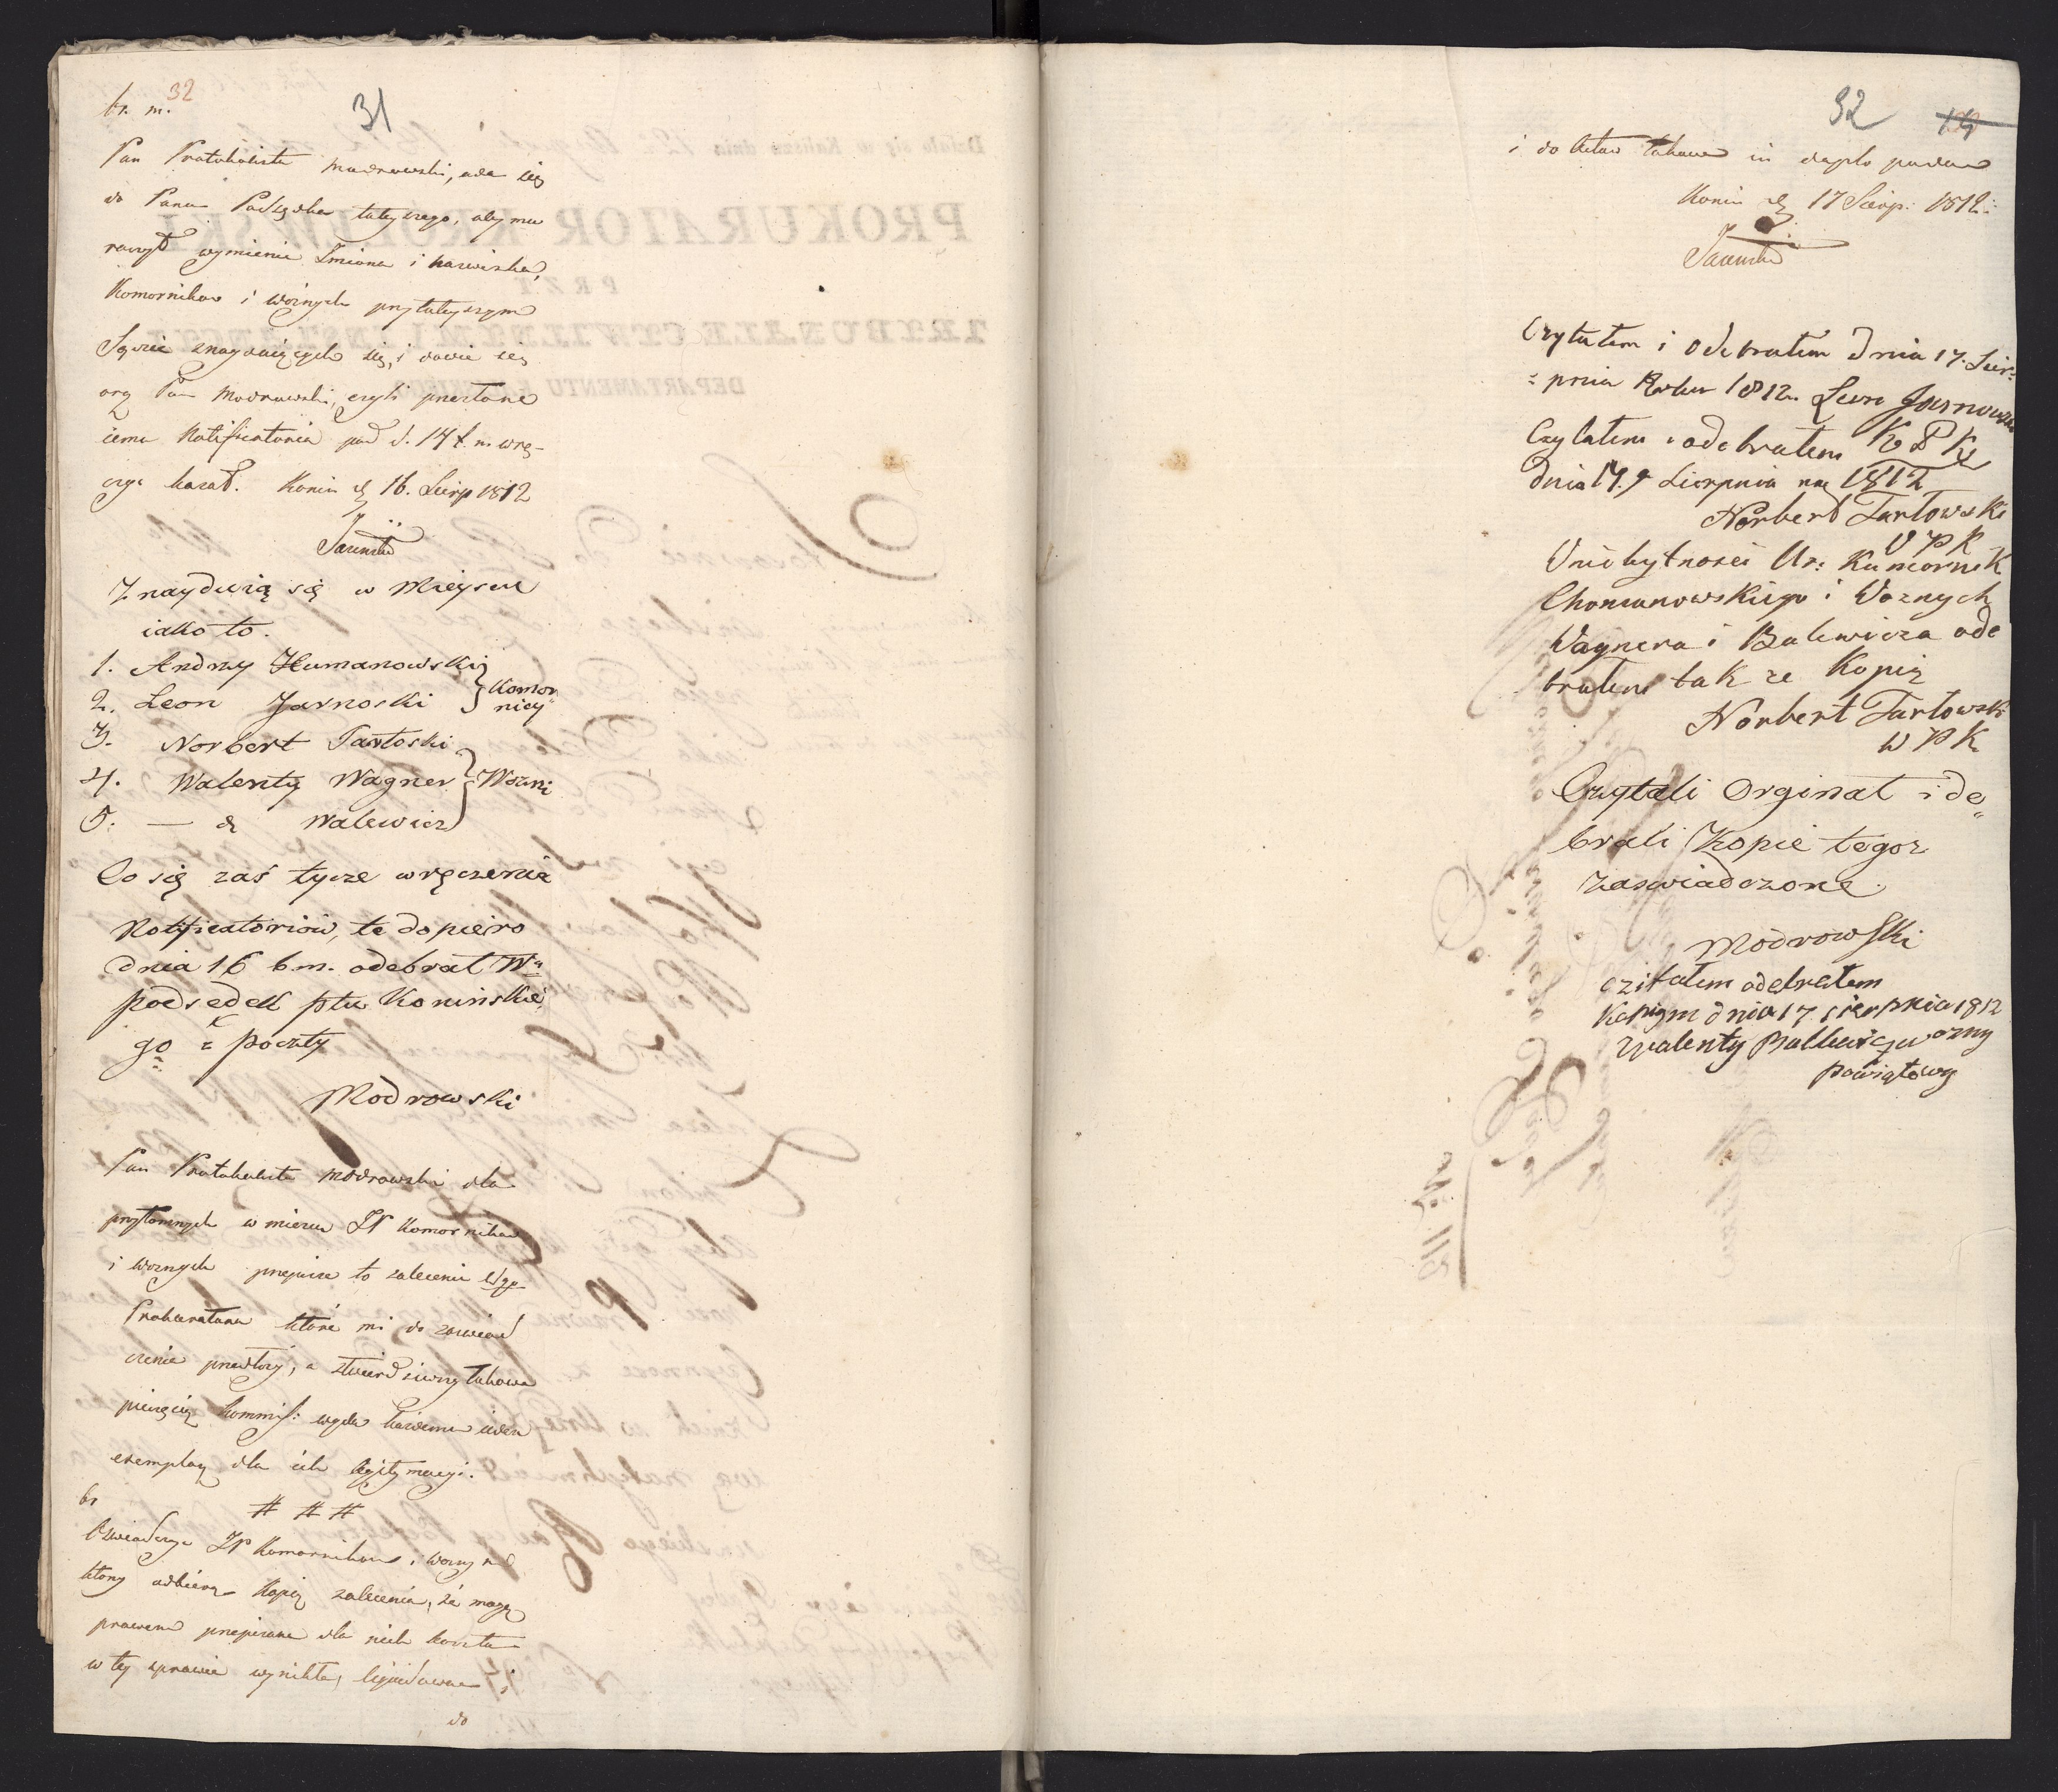 32
br. m.
31
Pan Protokolista Modrowski, uda się
do Pana Podsędka tuteyszego, aby mu
raczył wymienić Imiona i nazwiska,
Komorników i woźnych przy tuteyszym
Sądzie znayduiących się, i
czy Pan Modrowski, czyli przesłane
iemu Notificatoria pod d. 14 t. m. wrę-
czyć kazał. Konin d. 16. Sierp 1812
Znayduią się w Mieyscu
iako to.
1. Andrzy Humanowski
2. Leon Jarnoski } Komor
nicy
3. Norbert Tarłoski
4. Walenty Wagner } Wózni
5. — d Walewicz
Co się zaś tycze wręczenia
Notificatoriów, te dopiero
dnia 16 b. m. odebrał W
podsędek ptu Konińskie
go z poczty
Modrowski
Pan Protokolista Modrowski dla
przytomnych w mieyscu JP Komorników
i woznych przepisze to zalecenie
Prokuratora które mi do zaświad
czenia przedłoży, a ztwierdziwszy takowe
pieczęcią Kommiss: wyda każdemu ieden
exemplarz dla ich legitymacyi.
br
# # #
Oświadczy JP Komorników i wozny
który odbierze kopią zalecenia, że mogą
prawem przepisane dla nich koszta
w tey sprawie wynikłe, liquidować i
do
32
i do Aktów takowe in duplo podać
Konin d. 17 Sierp: 1812.
Czytałem i odebrałem dnia 17. Sier=
=pnia Roku 1812. Leon Jarnowski
K P K
Czytałem i odebrałem
dnia 17. Sierpnia 1812
Norbert Tarłowski
W P K
W niebytności Ur: Kumornik
Chomanowskiego i Woznych
Wagnera i Balewicza ode
brałem tak ze Kopią
Norbert Tarłowski
W P K
Czytali Orginał i de„
brali Kopie tegoz
zaswiadczone.
Modrowski
czitałem odebrałem
Kopiym dnia 17 sierpnia 1812
Walenty Balewicz wozny
powiatowy